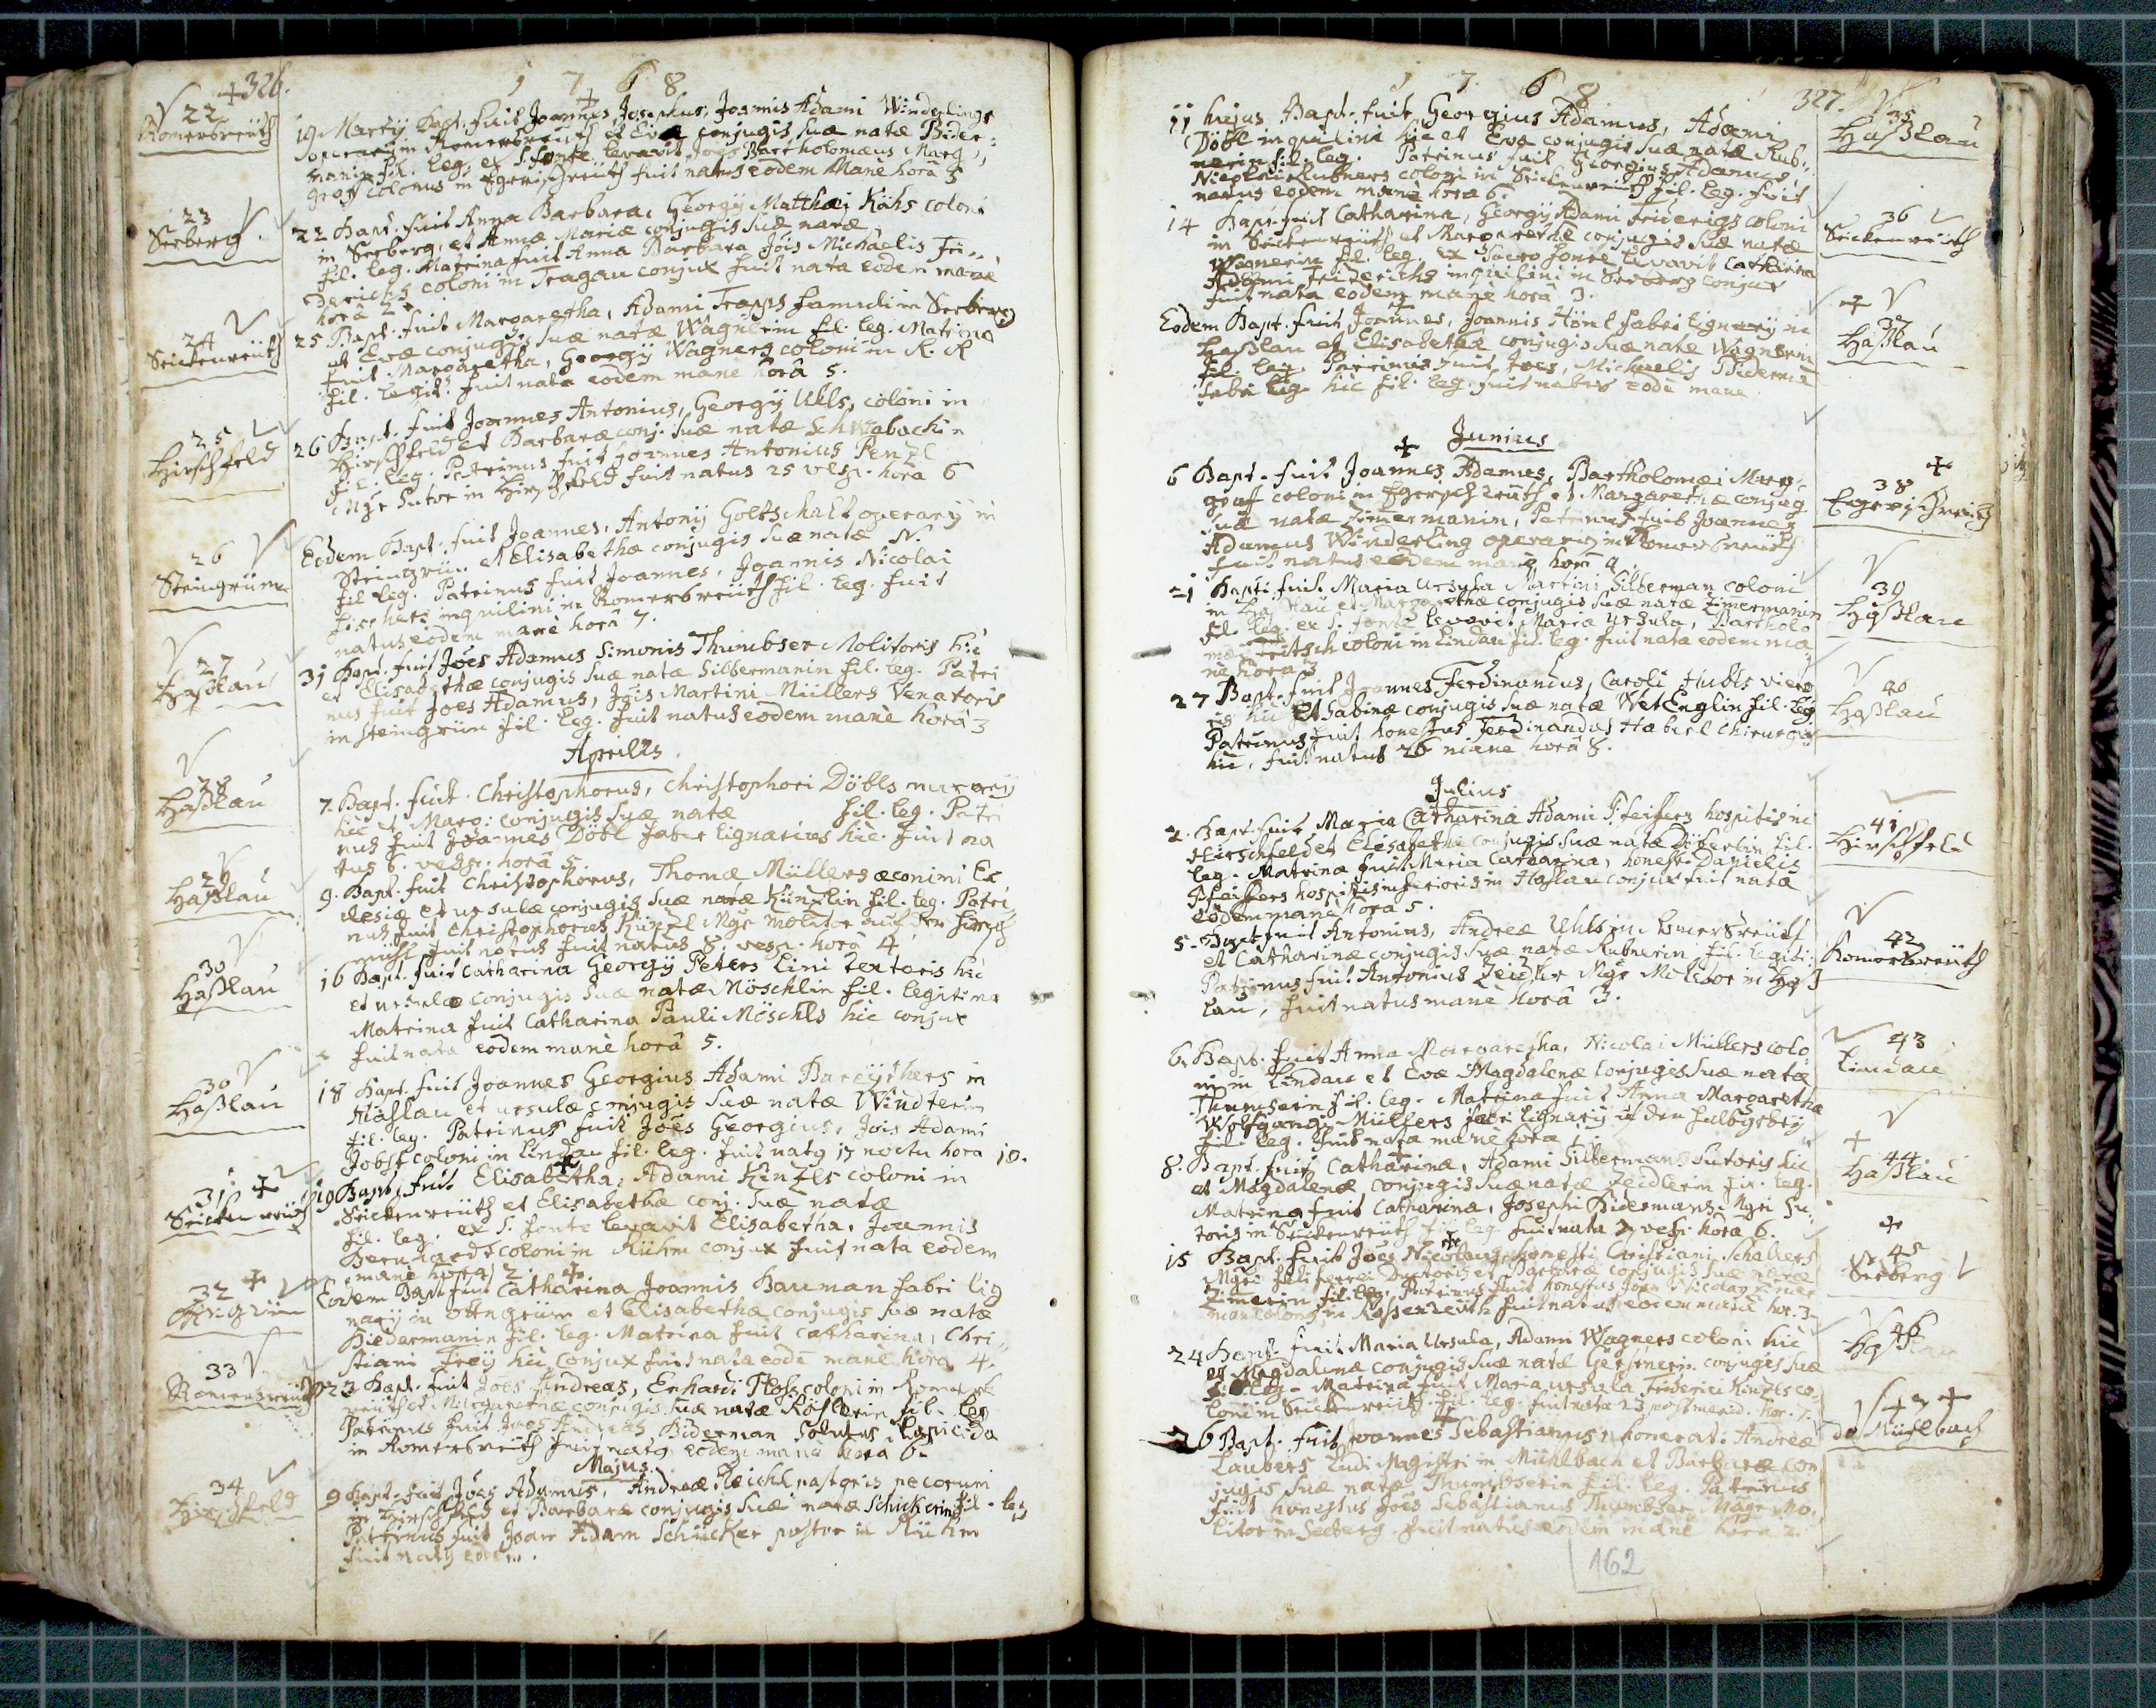 326.
1 7 6 8
22
Romersreuth
19 Martij Bapt. fuit Joannes Josephus, Joannis Adami Winderlings
operarij in Romersreuth et Evæ conjugis suæ natæ Bider:
manin fil. leg. ex S. fonte levavit Joës Bartholomæus Marg:
graff colonus in Egerischreuth fuit natus eodem Mane hora 3
23
Seeberg.
22 Bapt. fuit Anna Barbara, Georgij Matthæi Köhs coloni
in Seeberg, et Annæ Mariæ conjugis suæ natæ
fil. leg. Matrina fuit Anna Barbara Jois Michaelis Fri:
derichs coloni in Fragau conjux fuit nata eodem mane
hora 2
24
Seickenreuth
25 Bapt. fuit Margaretha, Adami Trapps famuli in Seeberg
et Evæ conjugis suæ natæ Wagnerin fil. leg. Matrina
fuit Margaretha, Georgij Wagners coloni in R. R
fil. legit. fuit nata eodem mane horâ 5.
25
Hirschfeld
26 Bapt. fuit Joannes Antonius, Georgij Uhls, coloni in
Hirschfeld et Barbaræ conj. suæ natæ Schwabachin
fil. leg. Patrinus fuit Joannes Antonius Penzl
Mgr Sutor in Hirschfeld fuit natus 25 vesp. hora 6
26
Steingrün
Eodem Bapt. fuit Joannes, Antonij Goltschalt operarij in
Steingrün et Elisabethæ conjugis suæ natæ N.
fil leg. Patrinus fuit Joannes, Joannis Nicolai
inquilini in Romersreuth fil. leg. fuit
natus eodem manè horâ 7.
27
Haßlau
31 Bapt. fuit Joës Adamus Simonis Thumbser Molitoris hic
et Elisabethæ conjugis suæ natæ Silbermanin fil. leg. Patri
nus fuit Joes Adamus, Jois Martini Müllers Venatoris
in Steingrün fil. leg. fuit natus eodem manè horâ 3
Aprilis.
28
Haßlau
7. Bapt. fuit Christophorus, Christophori Döbls murarij
hic et Marg: conjugis suæ natæ fil. leg. Patri
nus fuit Joannes Döbl faber lignarius hic. fuit na
tus 6. vesp. horâ 5.
29
Haßlau
9. Bapt. fuit Christophorus, Thomæ Müllers œconimi Ec
clesiæ et ursulæ conjugis suæ natæ Künzlin fil. leg. Patri
nus fuit Christophorus Künzl Mgr Molitor auf der
mühl fuit natus fuit natus 8. vesp. horâ 4
30
Haßlau
16 Bapt. fuit Catharina Georgij Peters lini textoris hic
et ursulæ conjugis suæ natæ Möschlin fil. legitima
Matrina fuit Catharina Pauli Möschls hic conjux
fuit nata eodem manè horâ 5.
30
Haßlau
18 Bapt. fuit Joannes Georgius Adami Bareijthers in
Haßlau et ursulæ conjugis suæ natæ Windterin
fil. leg. Patrinus fuit Joës Georgius, Jois Adami
Jobst coloni in Lindau fil. leg. fuit natq 17 noctu hora 10.
31
Seickenreuth
19 Bapt. fuit Elisabetha, Adami Kinzls coloni in
Seickenreuth et Elisabethæ conj. suæ natæ
fil. leg. ex S. fonte levavit Elisabetha, Joannis
Bernhardt coloni in Rühm conjux fuit nata eodem
manè hora 2.
32
Eodem Bapt. fuit Catharina Joannis Bauman fabri lig
narij in Obtngrün et Elisabethæ conjugis suæ natæ
Biedermanin fil. leg. Matrina fuit Catharina, Chri
stiani Freÿ hic conjux fuit nata eodē manè hora 4.
33
Romersreuth
23 Bapt. fuit Joës Andreas, Erhardi Ploß coloni in Romers
reuth et Margarethæ conjugis suæ natæ Rößlerin fil. leg
Patrinus fuit Joes Andreas Biderman Solutus Lapicida
in Romersreuth fuit natq eodem manè hora 6.
Majus.
34
Hirschfeld
9 Bapt. fuit Joës Adamus, Andreæ Reichl pastoris pecorum
in Hirschfeld et Barbaræ conjugis suæ natæ Schickerin fil. leg
Patrinus fuit Joan Adam Schücker pastor in Rühm
fuit natq eodem.
327.
1 7 6 8
35
Haßlau
11 hujus Bapt. fuit Georgius Adamus, Adami
Döbl inquilini hic et Evæ conjugis suæ natæ Rub:
nerin fil. leg. Patrinus fuit Georgius Adamus
Nicolai Rubners coloni in Seickenreuth fil. leg. fuit
natus eodem manè hora 6.
36
Seickenreuth
14 Bapt. fuit Catharina, Georgij Adami Friderigs coloni
in Seickenreuth et Margarethæ conjugis suæ natæ
Wagnerin fil. leg. ex Sacro fonte levavit Catharina
Adami Friderichs inquilini in Seeberg conjux
fuit nata eodem manè horâ 3.
37
Haßlau
Eodem Bapt. fuit Joannes, Joannis Hönl fabri lignarij in
Haßlau et Elisabethæ conjugis suæ natæ Wagnerin
fil. leg. Patrinus fuit Joes, Michaelis Biderma
fabri lig. hic fil. leg. fuit natus eodē mane
Junius
38
Egerischreuth
6 Bapt. fuit Joannes Adamus, Bartholomæi Marg:
graff coloni in Egerischreuth et Margarethæ conjug.
suæ natæ Zimermanin, Patrinus fuit Joannes
Adamus Winderling operarij in Romersreuth
fuit natus eodem manè hora 9.
39
Haßlau
21 Bapt. fuit Maria Ursula Martini Silberman coloni
in Haßlau et Margarethæ conjugis suæ natæ Zimermanin
fil. leg. ex S. fonte levavit Maria Ursula, Bartholo
mæi coloni in Lindau fil. leg. fuit nata eodem ma
nè hora 3
40
Haßlau
27 Bapt. fuit Joannes Ferdinandus, Caroli Hubls
hic et Sabinæ conjugis suæ natæ WetEnglin fil. leg.
Patrinus fuit honestus Ferdinandus Haberl Chirurgus
hic, fuit natus 26 manè horâ 8.
Julius
41
Hirschfeld
2. Bapt. fuit Maria Catharina Adami Pfeifers hospitis in
Hirschfeld et Elisabethæ conjugis suæ natæ Döberlin fil.
leg. Matrina fuit Maria Catharina, honesti Danielis
Pfeiffers hospitis inferioris in Haslau conjux fuit nata
eodem manè hora 5.
42
Romersreuth
5. Bapt. fuit Antonius, Andreæ Uhls in Romersreuth
et Catharinæ conjugis suæ natæ Rubnerin fil. legiti:
Patrinus fuit Antonius Zeidler Mgr Molitor in Haß
lau, fuit natus manè horâ 3.
43
Lindau
6. Bapt. fuit Anna Margaretha, Nicolai Müllers colo
ni in Lindau et Evæ Magdalenæ conjugis suæ natæ
Thumserin fil. leg. Matrina fuit Anna Margaretha
Wolfgangi Müllers fabri lignarij
fil. leg. fuit nata manè hora
44
Haßlau
8. Bapt. fuit Catharina, Adami Silbermans Sutoris hic
et Magdalenæ conjugis suæ natæ Zeidlerin fil. leg.
Matrina fuit Catharina, Josephi Bidermans Mgri Su:
toris in Seickenreuth fil. leg. fuit nata 7 vesp. hora 6.
45
Seeberg
15 Bapt. fuit Joës Nicolaus, honesti Christiani Schallers
Mgri fili ferrei Ductoris et Barbaræ conjugis suæ natæ
Zimerin fil. leg. Patrinus fuit honestus Joan Nicolaq Zimer
man colonq in Roßenreuth fuit natus eodem manè hor. 3.
46
Haßlau
24 Bapt. fuit Maria Ursula, Adami Wagners coloni hic
et Magdalenæ conjugis suæ natæ Gerstnerin conjugis suæ
fil. leg. Matrina fuit Maria ursula Friderici Kinzls co:
loni in Seickenreuth fil. leg. fuit nata 23 post merid. hor. 7.
47
Mühlbach
26 Bapt. fuit Joannes Sebastianus, honorati Andreæ
Laubers Ludi Magistri in Mühlbach et Barbaræ con
jugis suæ natæ Thumbserin fil. leg. Patrinus
fuit honestus Joës Sebastianus Thumbser Mgr Mo.
litor in Seeberg. fuit natus eodem manè hora 2.
162